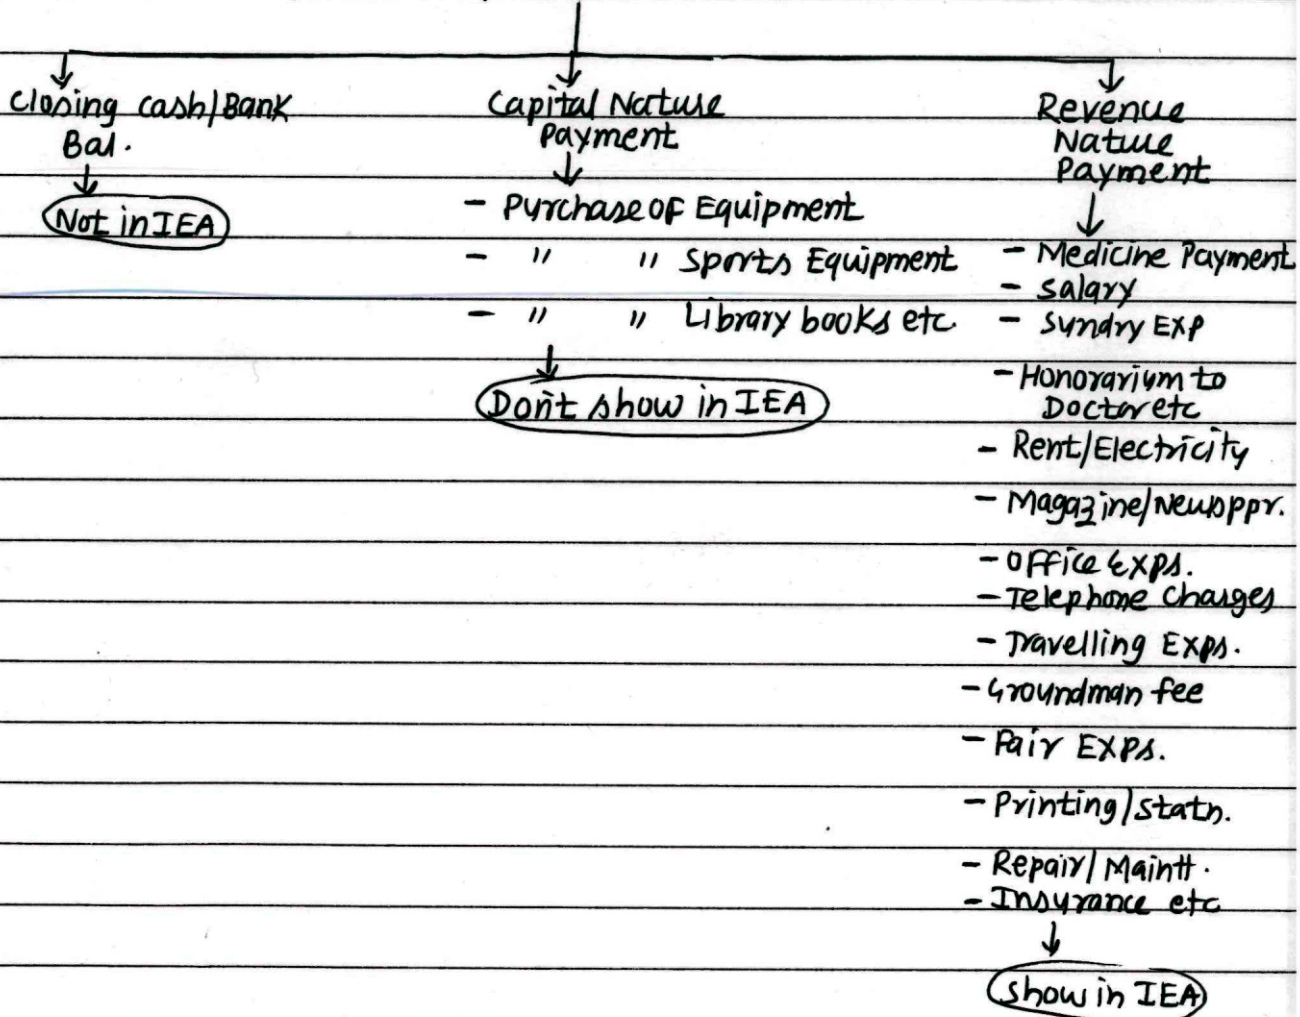 Closing cash/Bank
Bal.
Not in IEA
Capital Nature
Payment
- Purchase of Equipment
- " " Sports Equipment
- " " Library books etc
Don't show in IEA
Revenue
Nature
Payment
- Medicine Payment
- Salary
- Sundry Exp
- Honorarium to
Doctor etc
- Rent/Electricity
- Magazine/Newsppr.
- Office Exps.
- Telephone Charges
- Travelling Exps.
- Groundman fee
- Fair Exps.
- Printing/Statn.
- Repair/Maintt.
- Insurance etc
Show in IEA